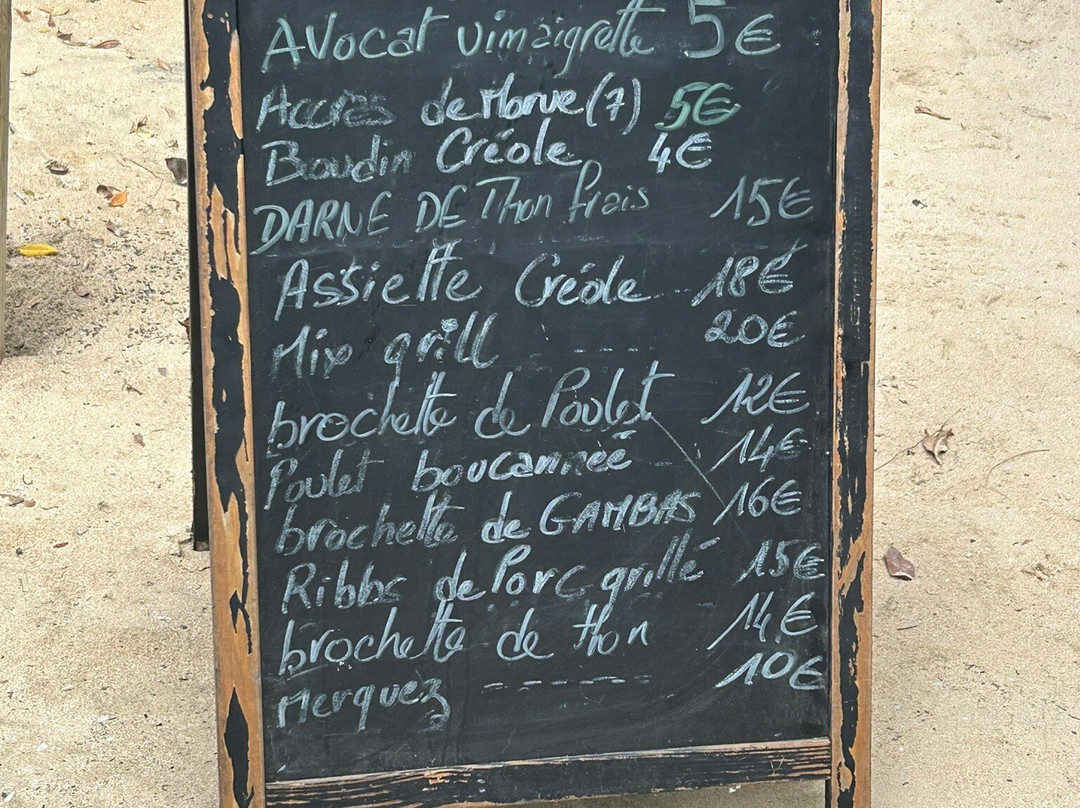 Avocat vinaigrette 5€
Accras de Morue (7) 5€
Boudin Créole 4€
DARNE DE Thon frais 15€
Assiette Créole 18€
Mix grill 20€
brochette de Poulet 12€
Poulet boucannéé 14€
brochette de GAMBAS 16€
Ribbs de Porc grillé 15€
brochette de thon 14€
Merquez 10€